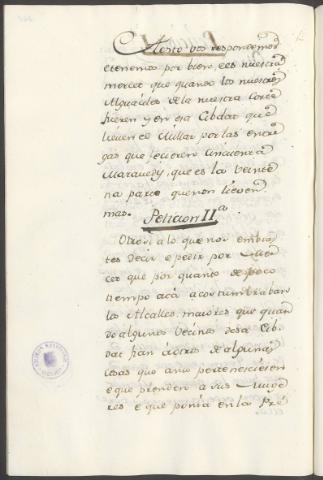 A esto vos respondemos
e tenemos por bien, e es nuestra
mercet que quando los nuestros
Alguaciles de la nuestra Corte
fueren y en esa Cibdat que
lieven de Millar por las entre
gas que fecieren Cincuenta
Maravedis, que es la veinte
na parte que non lieven
mas.
Peticion IIª
Otrosi a lo que nos embia
tes decir e pedir por Mer
cet que por quanto de poco
tiempo acá acostumbraban
los Alcalles maiores que quan
do algunos Vecinos desa Cib
dat han de algunas
cosas que ante
e que prenden a sus Muge
res e que ponia en la Pre